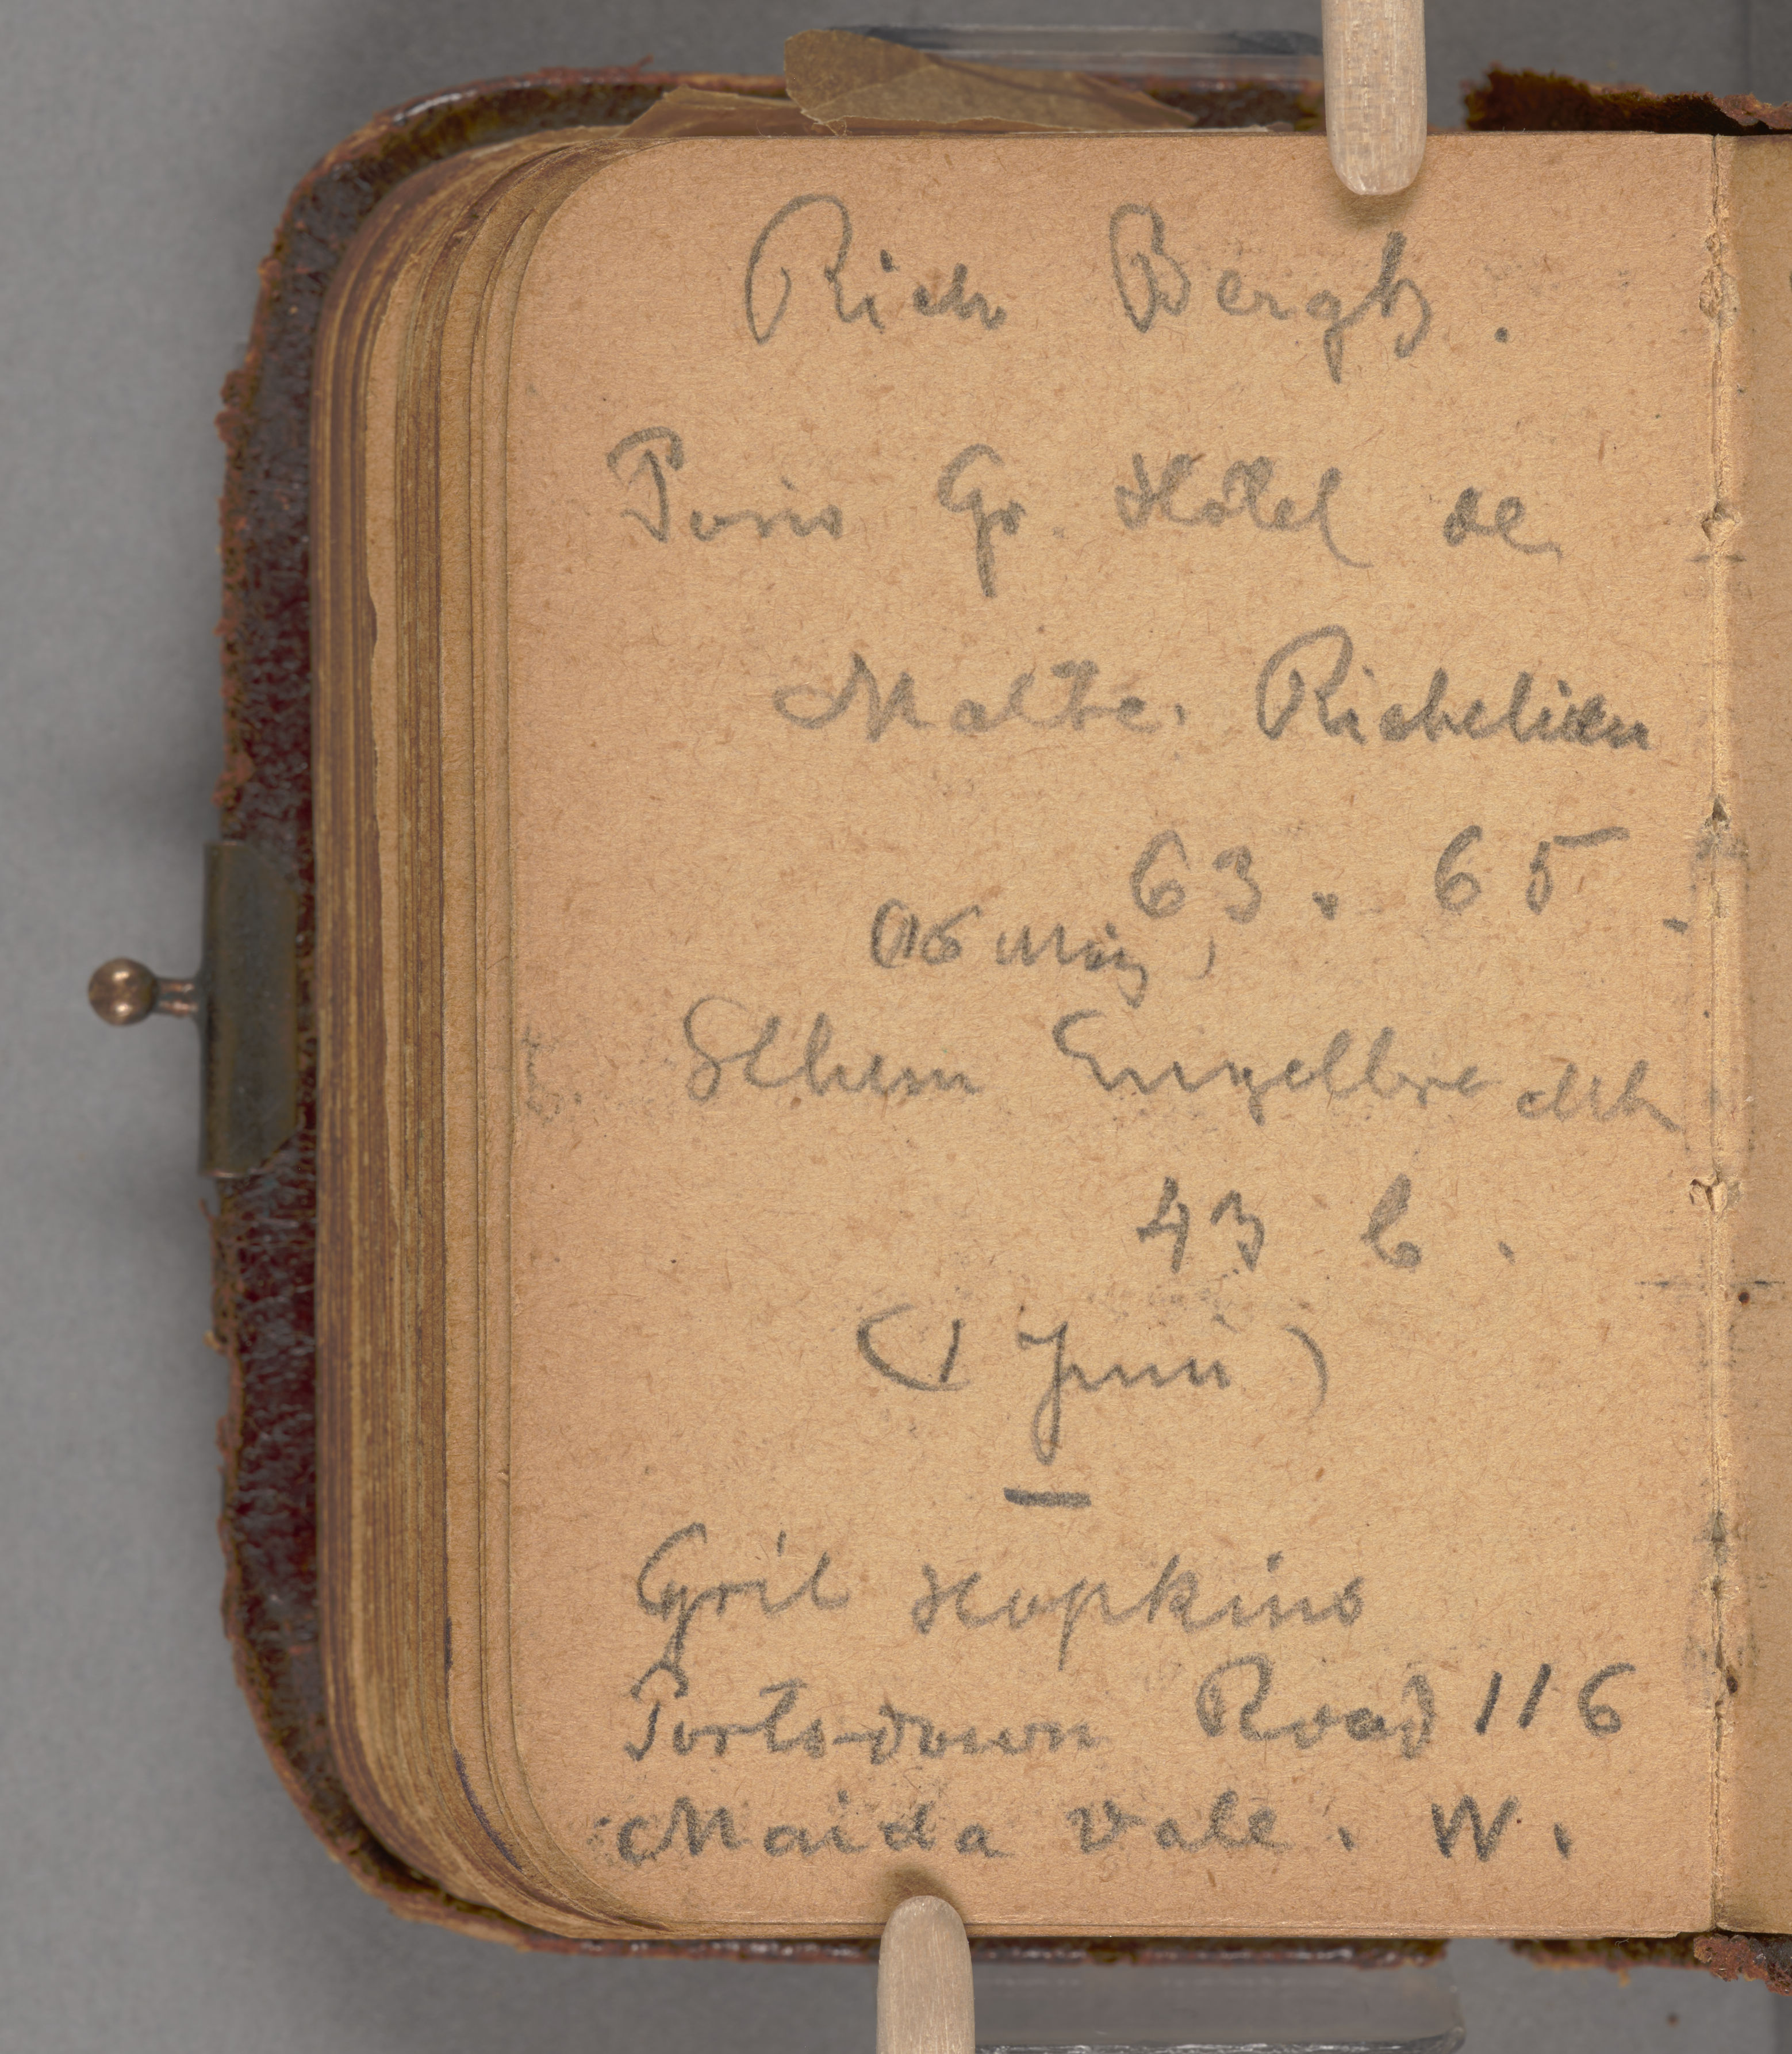 Rich Bergh.
Paris Gr. Hôtel de
Malte. Richelieu
63. 65.
(16 März)
Sthlm Engelbrecht
43 b.
(1 Juni)
—
Cyril Hopkins
Portsdown Road 116
Maida Vale. W.